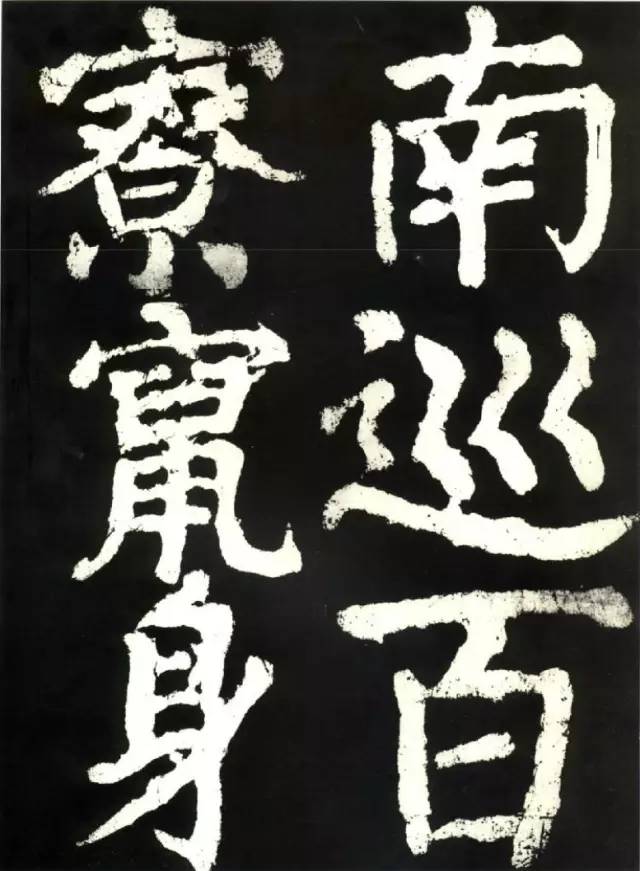 南巡百
寮竄身